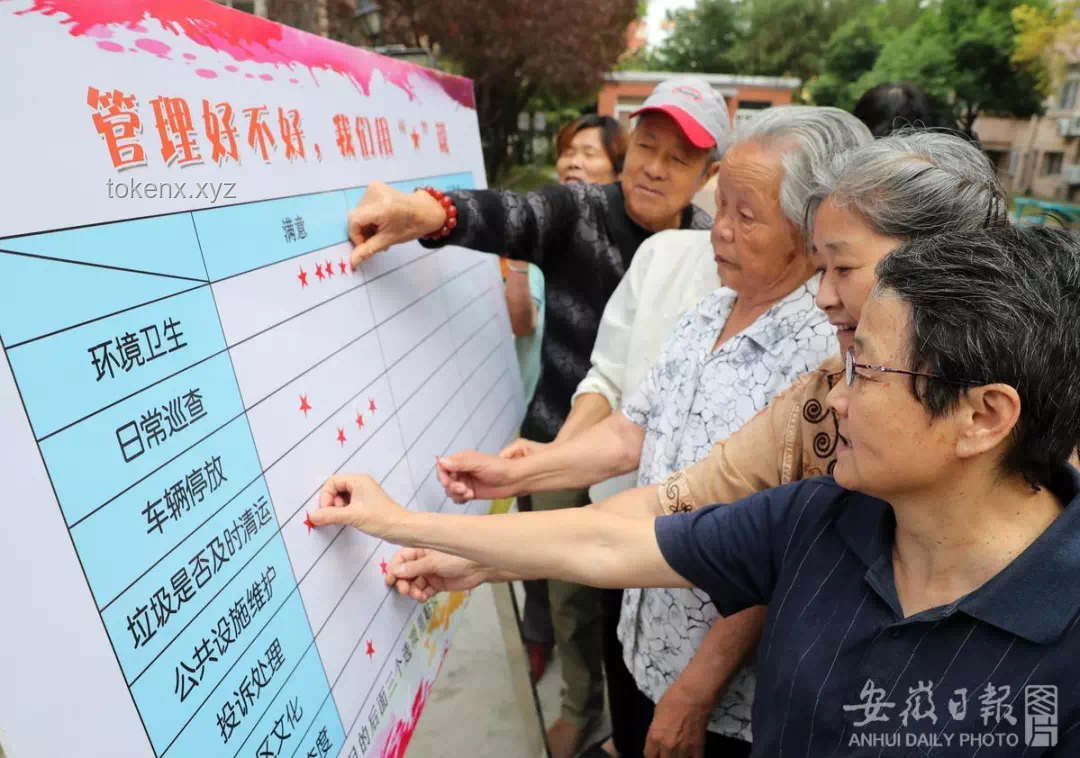 管理好不好，我们用“★”
tokenx.xyz
满意
环境卫生
日常巡查
车辆停放
垃圾是否及时清运
公共设施维护
投诉处理
区文化
态度
的后面三个选项
安徽日报
ANHUI DAILY PHOTO